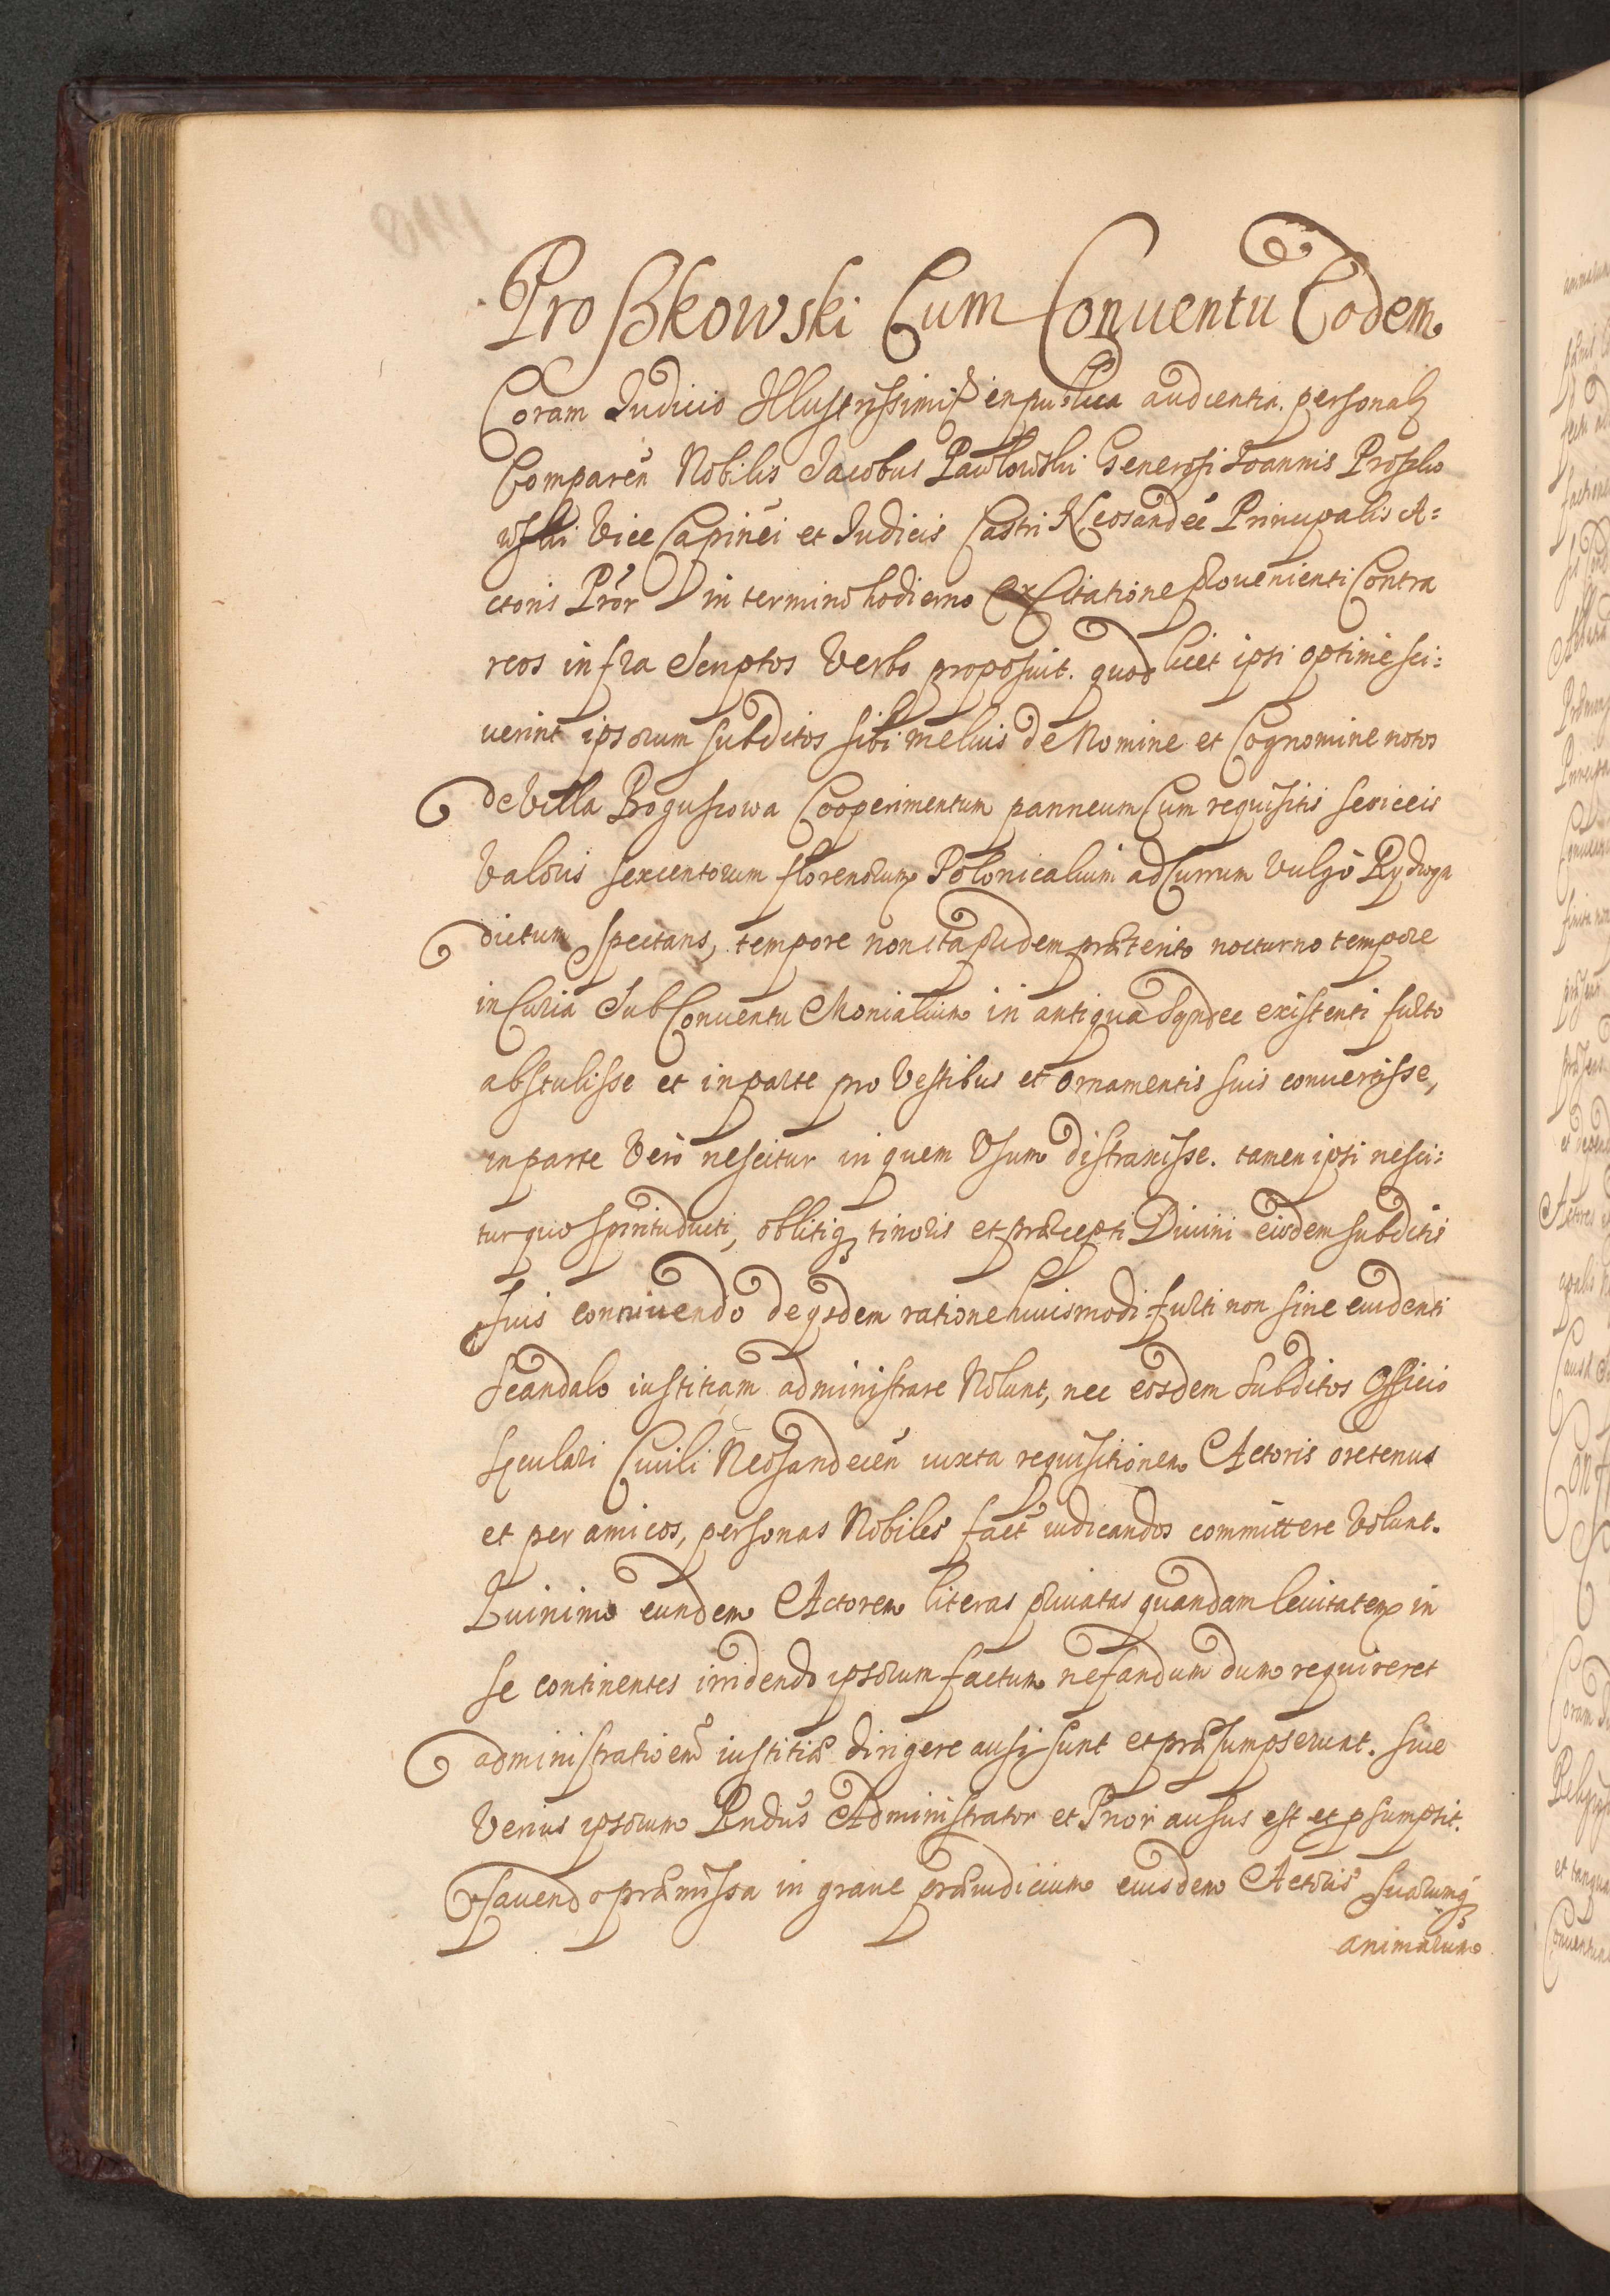 Proszkowski Cum Conuentu Eodem
Coram Iudicio Illustrissimi in publica audientia personalr
Comparen̄ Nobilis Jacobus Pawłowski Generosi Joannis Proszko
wski Vice Capinei et Iudicis Castri Neosandeć Principalis A=
ctoris Pror in termino hodierno ex Citatione prouenienti Contra
reos infra Scriptos Verbo proposuit. quod licet ipsi optime sci=
uerint ipsorum subditos sibi melius de Nomine et Cognomine notos
de Villa Boguszowa Cooperimentum panneum Cum requisitis sericeis
Valoris sexcentorum florenorum Polonicalium ad Currum Vulgo Rydwan
dictum spectans, tempore non ita pridem præterito nocturno tempore
in Curia Sub Conuentu Monialium in antiqua Syndec existenti furto
abstulisse et in parte pro Vestibus et ornamentis suis conuertisse,
in parte Vero nescitur in quem Vsum distraxisse. tamen ipsi nesci=
tur quo spiritu ducti, obliti q timoris et præcepti Diuini eisdem subditis
suis conniuendo de ijsdem ratione huiusmodi furti non sine euidenti
scandalo iustitiam administrare Nolunt, nec eosdem Subditos Officio
sæculari Ciuili Neosandecen̄ iuxta requisitionem Actoris oretenus
et per amicos, personas Nobiles fact iudicandos committere Volunt.
Quinimo eundem Actorem literas priuatas quandam leuitatem in
se continentes irridendo ipsorum factum nefandum dum requireret
administratioem iustitiæ dirigere ausi sunt et præsumpserunt. siue
Verius ipsorum Rndus Administrator et Prior ausus est et psumpsit.
Fauendo præmissa in graue præiudicium eiusdem Actoris suarumq
animarum